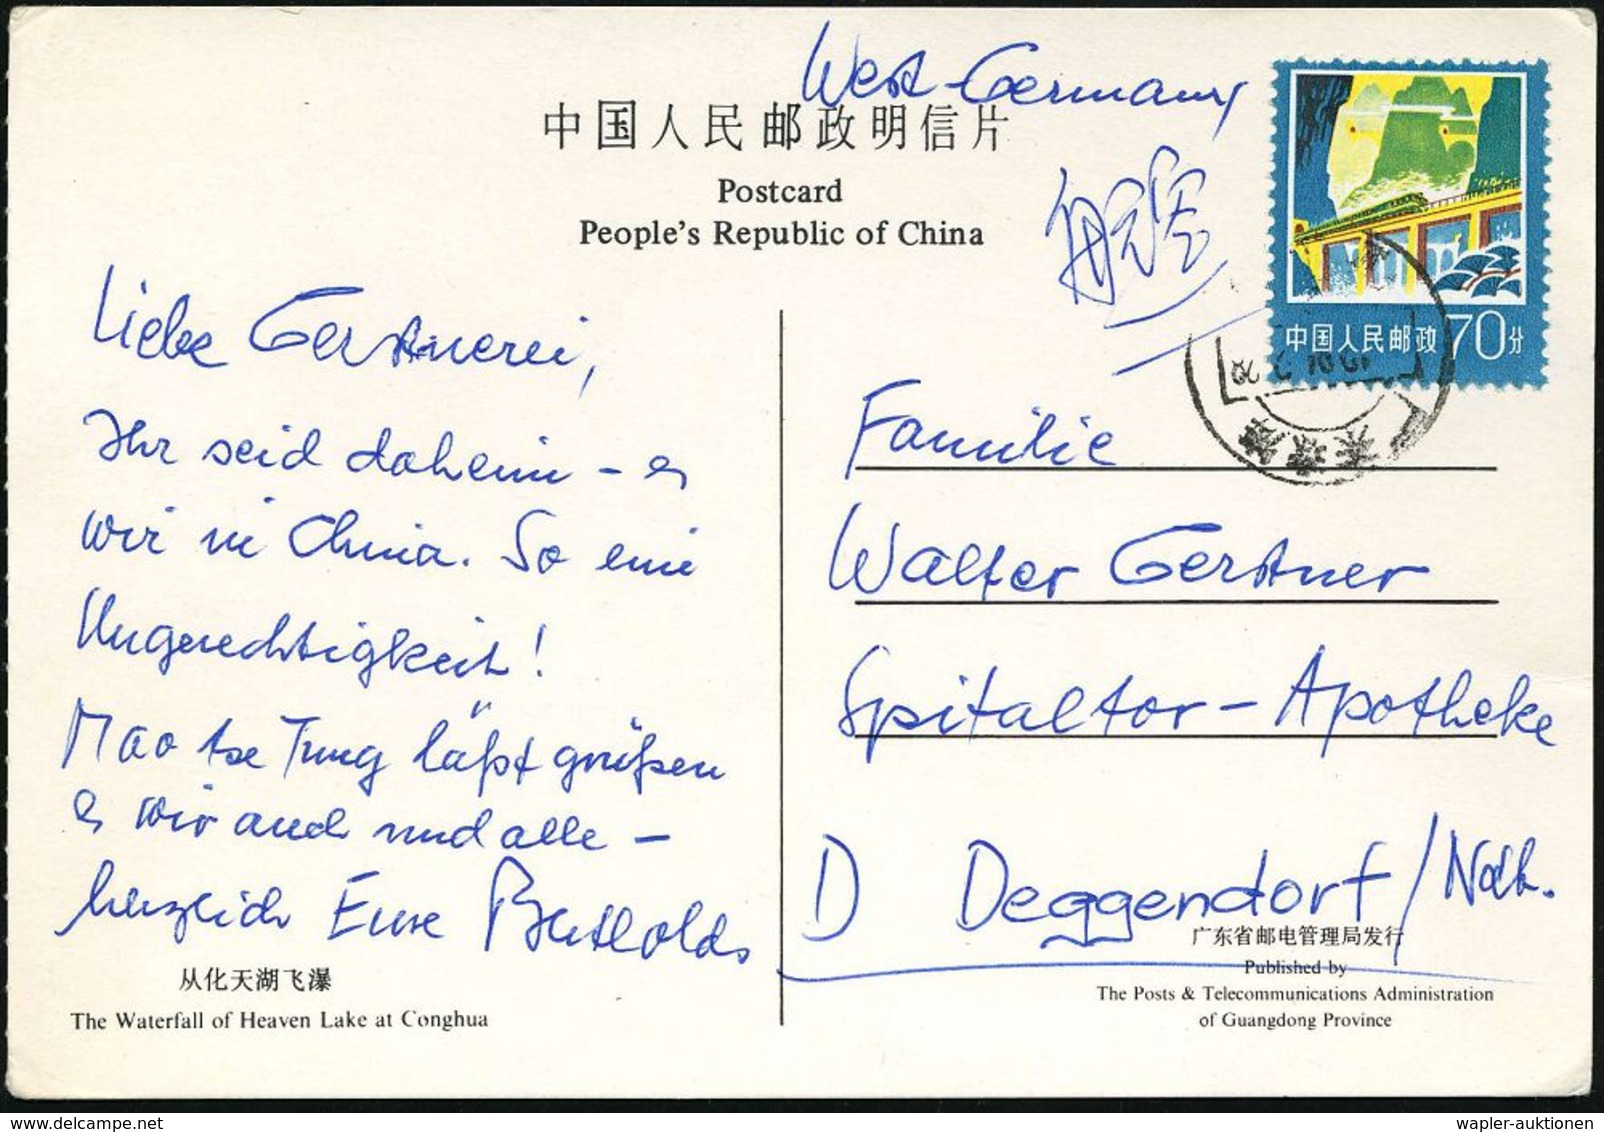 West-Germany
中国人民邮政明信片
Postcard
People's Republic of China
航空
中国人民邮政 70分
Liebe Gerstnerei,
Ihr seid daheim – &
wir in China. So eine
Ungerechtigkeit!
Mao tse Tung läßt grüßen
& wir auch und alle –
herzlich Eure Bertholds
从化天湖飞瀑
The Waterfall of Heaven Lake at Conghua
Familie
Walter Gerstner
Spitaltor-Apotheke
D Deggendorf/Ndb.
广东省邮电管理局发行
Published by
The Posts & Telecommunications Administration
of Guangdong Province
wapler-auktionen